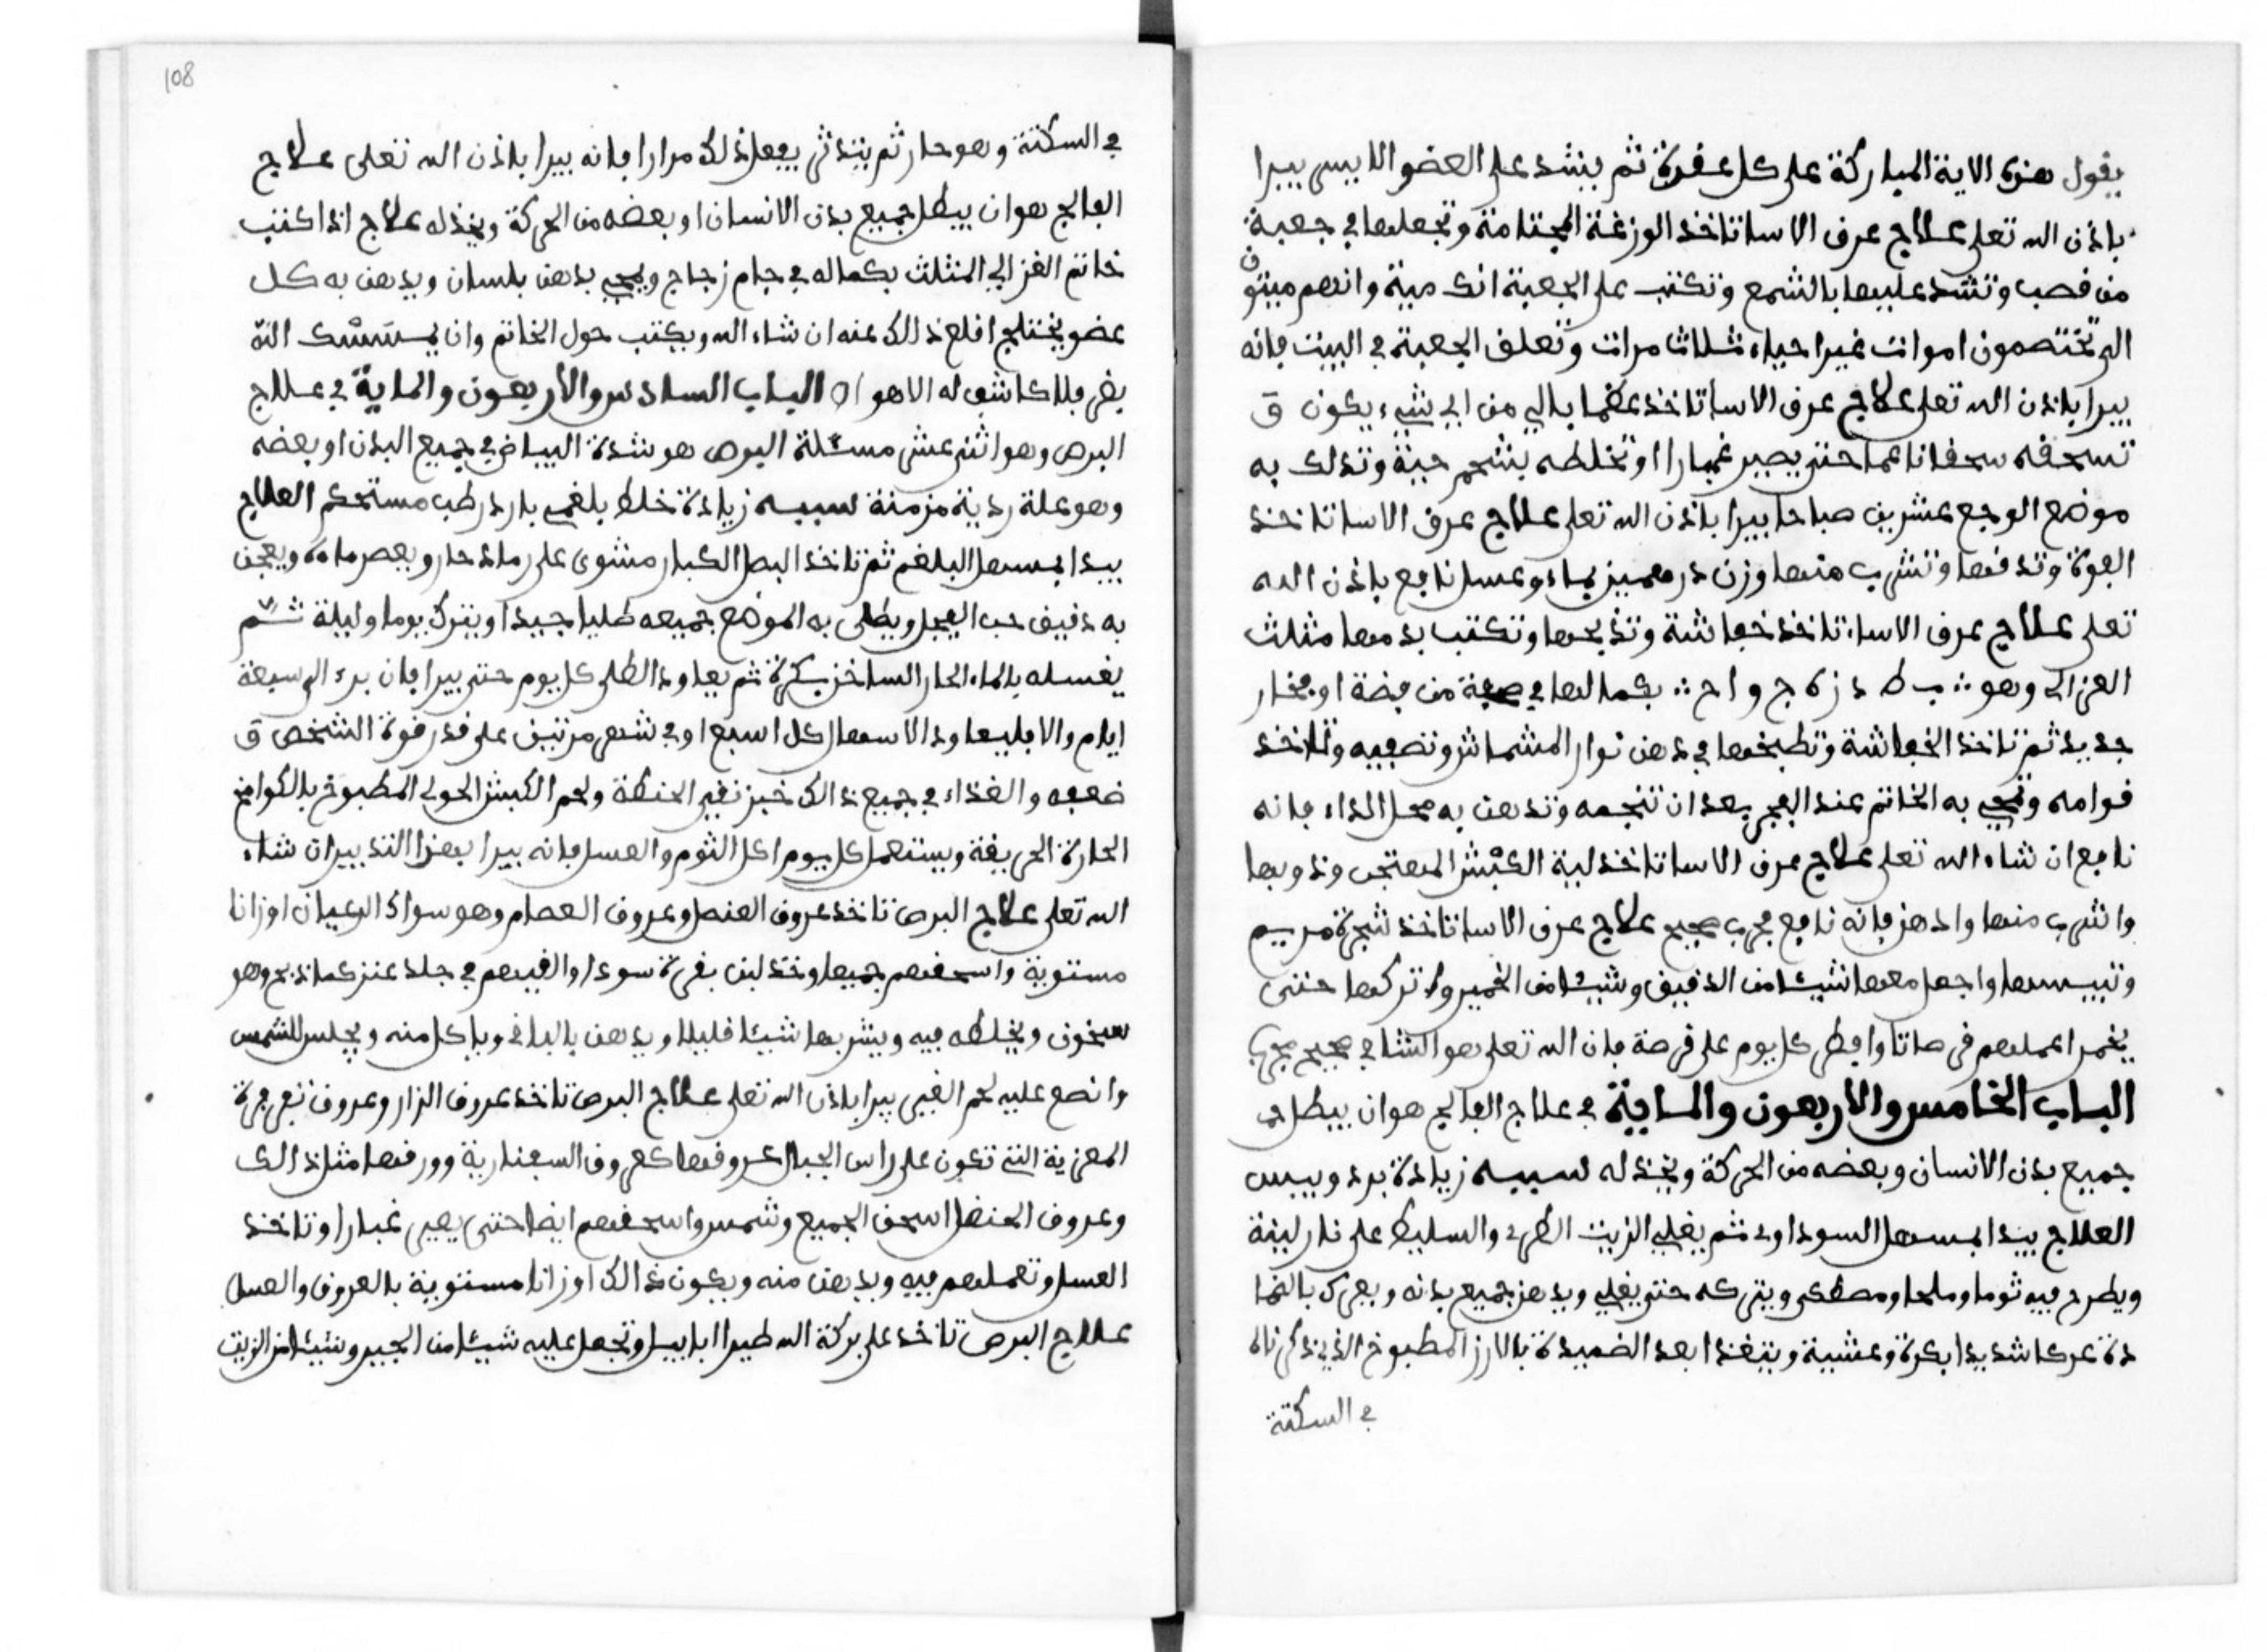 يقول هذه الاية المباركة على كل عقدة ثم يشد على العضو الايسر يبرا
باذن الله تعلى علاج عرق الاسا تاخذ الوزغة وتجعلها في جعبة
من قصب وتشد عليها بالشمع وتكتب على الجعبة انك ميت وانهم ميتون
الى تختصمون اموات غير احياء ثلاث مرات وتعلق الجعبة في البيت فانه
يبرا باذن الله تعلى علاج عرق الاسا تاخذ عظما بالي من اي شيء يكون و
تسحقه سحقا ناعما حتى يصير غبارا او تخلطه بشحم حية وتدلك به
موضع الوجع عشرين صباحا يبرا باذن الله تعلى علاج عرق الاسا تاخذ
الفوة وتدقها وتشرب منها وزن درهمين بماء وعسل نافع باذن الله
تعلى علاج عرق الاساء تاخذ خفاشة وتذبحها وتكتب بدمها مثلث
الغزالي وهو ب ط د ز ه ج و ا ح بكمالها في من فضة او فخار
جديد ثم تاخذ الخفاشة وتطبخها في دهن نوار المشماش وتصفيه وتاخذ
قوامه وتمحي به الخاتم عند الفجر بعد ان تنجمه وتدهن به محل الداء فانه
نافع ان شاء الله تعلى علاج عرق الاسا تاخذ لية الكبش وذوبها
واشرب منها وادهن فانه نافع مجرب صحيح علاج عرق الاسا تاخذ شجرة مريم
وتيبسها واجعل معها شيئا من الدقيق وشيئا من الخمير واتركها حتى
يخمر اعملهم قرصاتا وافطر كل يوم على قرصة فان الله تعلى هو الشافي صحيح مجرب
الباب الخامس والاربعون والماية في علاج الفالج هو ان يبطل
جميع بدن الانسان وبعضه من الحركة ويخذله سببه زيادة برد ويبس
العلاج يبدا بمسهل السوداوي ثم يغلي الزيت الطري والسليط على نار لينة
ويطرح فيه ثوما وملحا ومصطكى ويتركه حتى يغلي ويدهن جميع بدنه ويعرك بالضما
دة عركا شديدا بكرة وعشية ويتغذا بعد الضميدة بالارز المطبوخ الذي ذكرناه
في السكتة
108
في السكتة وهو حار ثم يتدثر يفعل ذلك مرارا فانه يبرا باذن الله تعلى علاج
الفالج هو ان يبطل جميع بدن الانسان او بعضه من الحركة ويخذله علاج اذا كتب
خاتم الغزالي المثلث بكماله في جام زجاج ويمحي بدهن بلسان ويدهن به كل
عضو يختلج اقلع ذلك عنه ان شاء الله ويكتب حول الخاتم وان يمسسك الله
بضر فلا كاشف له الا هو اه الباب السادس والأربعون والماية في علاج
البرص وهو اثنى عشر مسئلة البرص هو شدة البياض في جميع البدن او بعضه
وهو علة ردية مزمنة سببه زيادة خلط بلغمي بارد رطب مستحكم العلاج
يبدا بمسهل البلغم ثم تاخذ البصل الكبار مشوى على رماد حار ويعصر ماءه ويعجن
به دقيق حب الفجل ويطلى به الموضع جميعه طليا جيدا ويترك يوما وليلة ثم
يغسله بالماء الحار الساخن بكرة ثم يعاود الطلى كل يوم حتى يبرا فان برء الى سبعة
ايام والا فليعاود الاسهال كل اسبع او في شهر مرتين على قدر قوة الشخص و
ضعفه والغذاء في جميع ذالك خبز نقي الحنطة ولحم الكبش الحولي المطبوخ بالكوامخ
الحارة الحريفة ويستعمل كل يوم اكل الثوم والعسل فانه يبرا بهذا التدبير ان شاء
الله تعلى علاج البرص تاخذ عروق العنصل وعروق العصام وهو سواك الرعيان اوزانا
مستوية واسحقهم جميعا وخذ لبن بقرة سودا والقيهم في جلد عنز كما ذبح وهو
سخون ويخلطه فيه ويشربها شيئا قليلا ويدهن بالباقي وياكل منه ويجلس للشمس
وانصع عليه لحم يبرا باذن الله تعلى علاج البرص تاخذ عروق الزار وعروق
المعزية التي تكون على راس الجبال عروقها كعروق السفنارية وورقها مثل ذالك
وعروق الحنضل اسحق الجميع وشمس واسحقهم ايضا حتى غبارا وتاخذ
العسل وتعملهم فيه ويدهن منه ويكون ذالك اوزانا مستوية بالعروق والعسل
علاج البرص تاخذ على بركة الله طيرا ابابيل وتجعل عليه شيئا من الجير وشيئا من الزيت